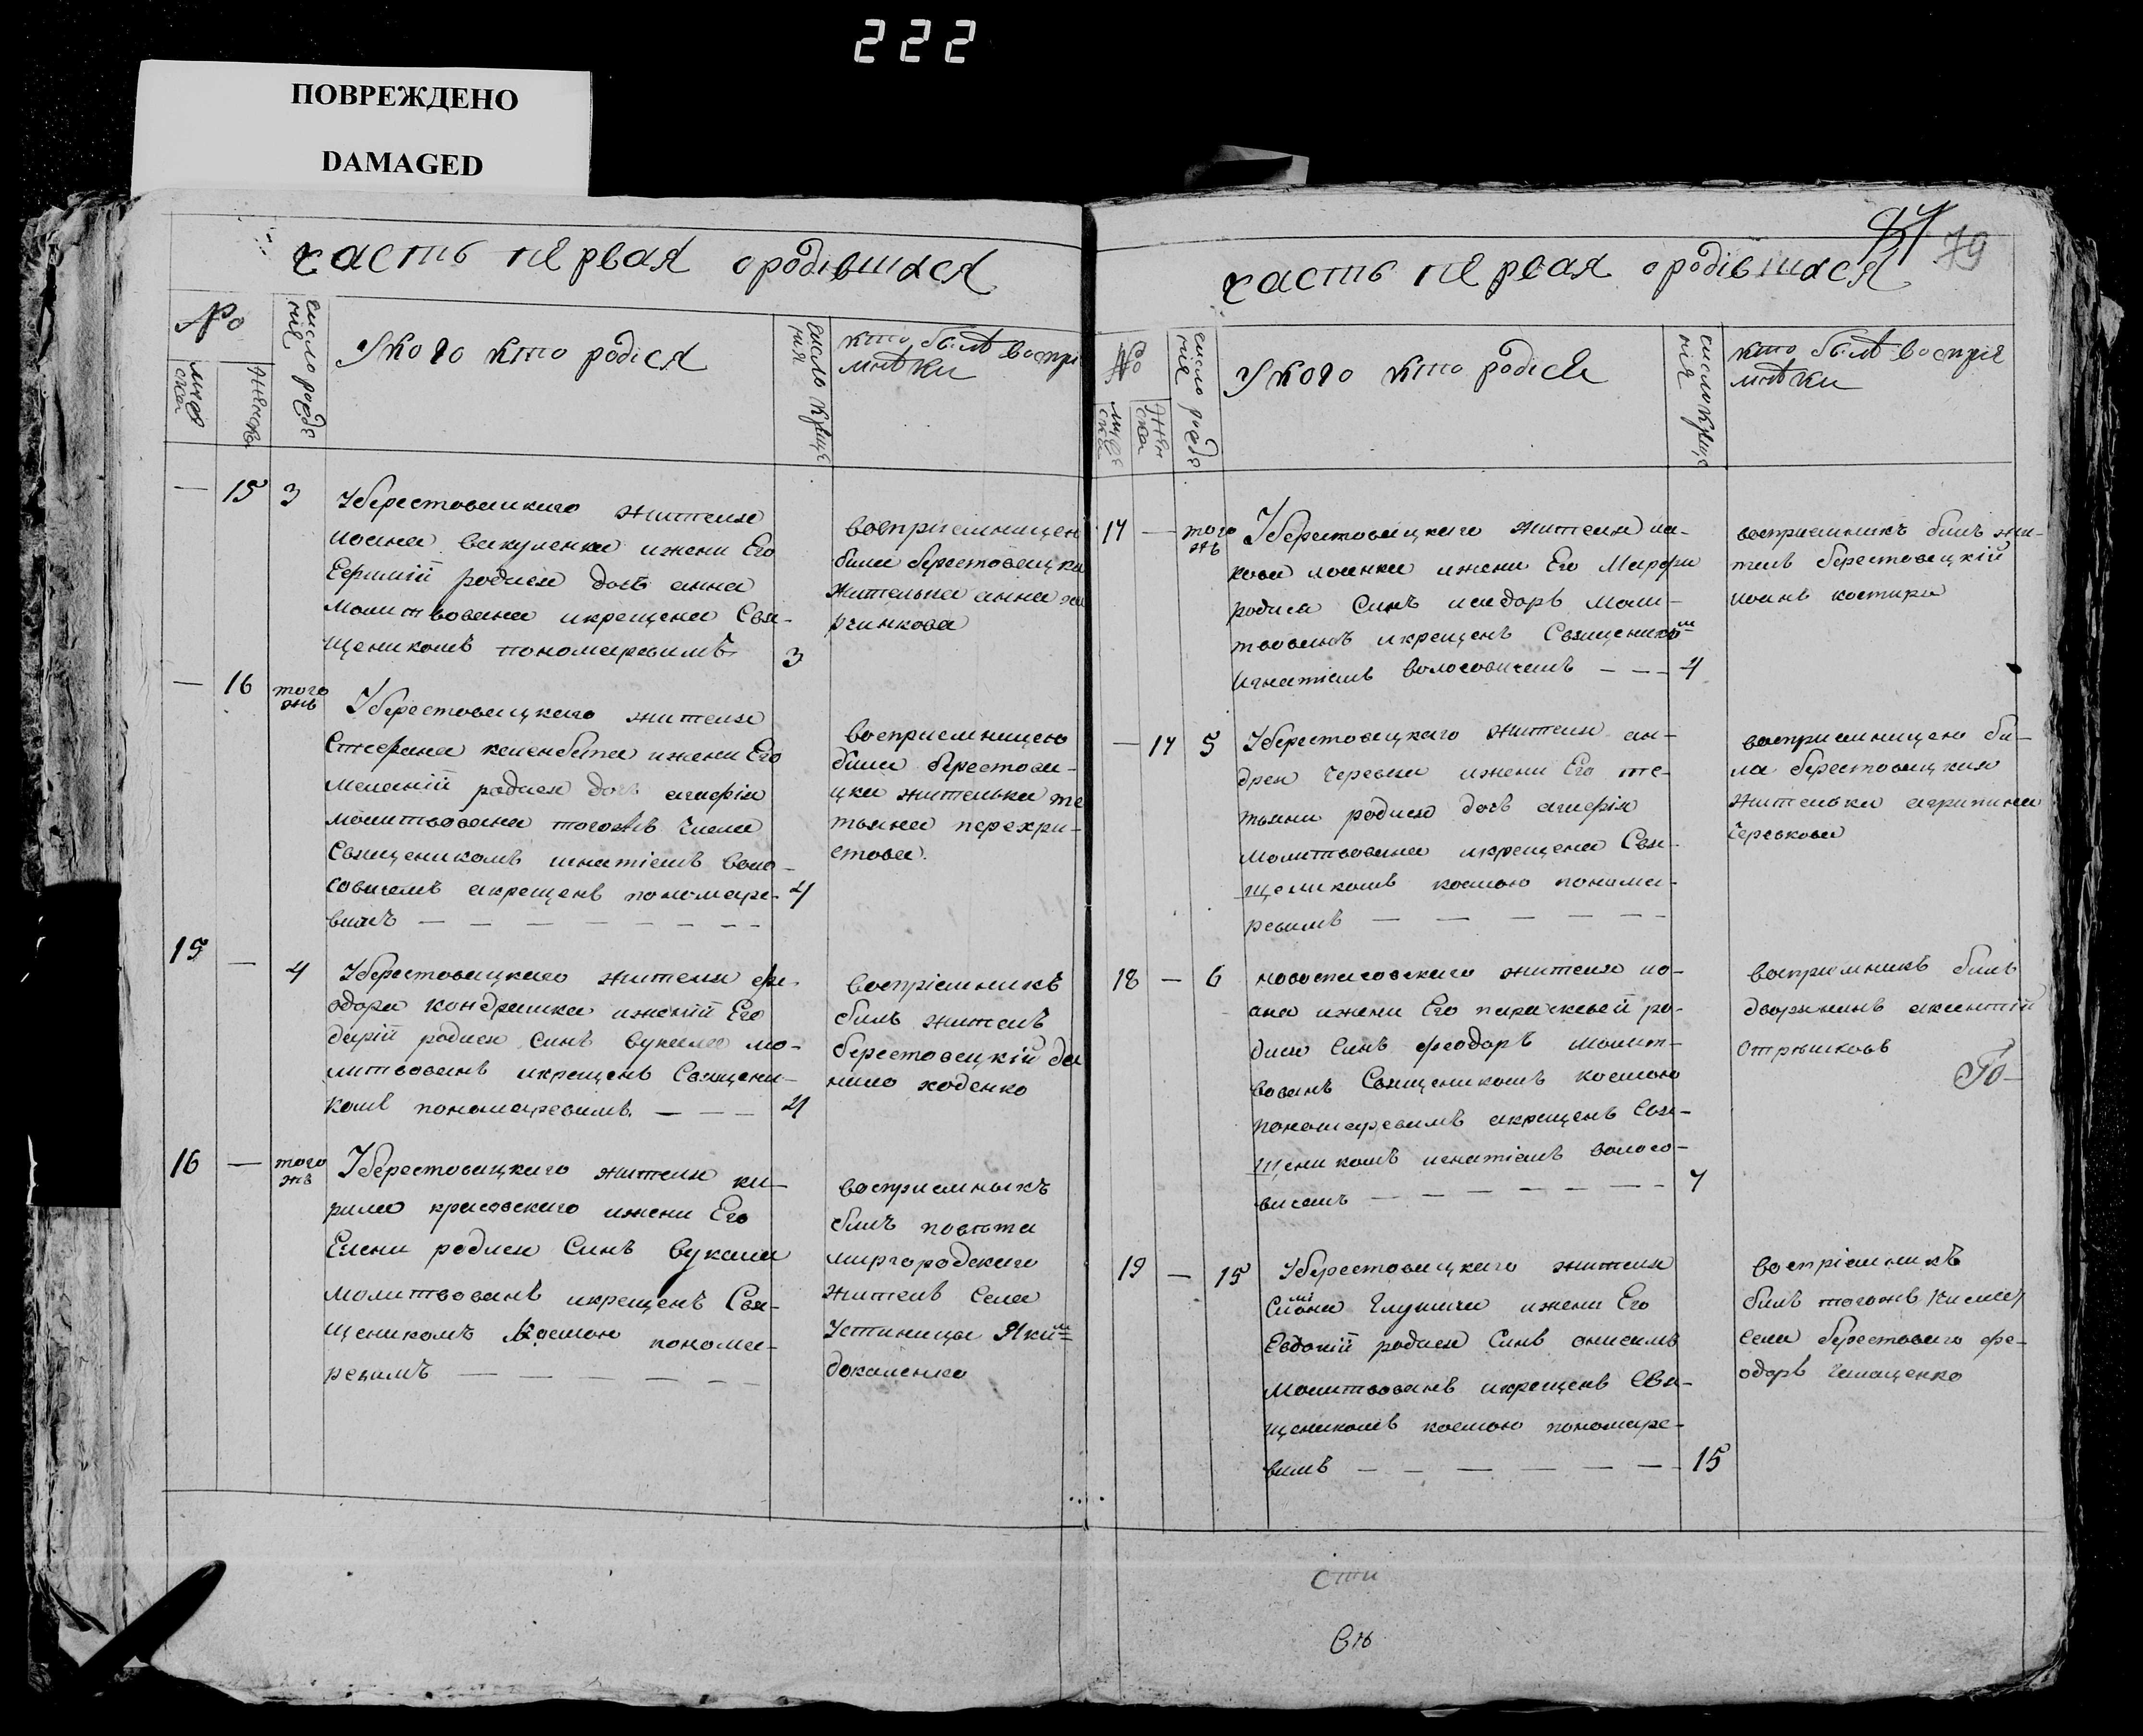 222
ПОВРЕЖДЕНО
DAMAGED
часть первая ородившихся
№
мужеска
женска
число рожде
нія
Укого кто родися
число креще
ния
кто былъ воспріе
мники
— 15 3
Уберестовецкаго жителя
иоана вакуленка ижени Его
родися дочь анна
молитвована икрещена Свя-
щеникомъ пономаревимъ 3
восприемницею
била берестовецка
жителька анна
— 16 того
жъ
Уберестовецкаго жителя
Стефана ижени Его
меланій родися дочь агафія
молитвована тогожъ числа
Священикомъ игнатіемъ воло-
совичемъ акрещенъ пономаре- 4
вимъ
восприемницею
била берестове-
цка жителька те
тьяна перехри-
стова.
15 — 4
Уберестовецкаго жителя фе-
одора кондрашка ижений Его
дарій родися Синъ вукола мо-
литвованъ икрещенъ Священи-
комъ пономаревимъ — — — 4
воспріемникъ
билъ житель
берестовецкій да
нило ходенко
16 — того
жъ
Уберестовецкаго жителя ки-
рила красовскаго ижени Его
Елени родися Синъ вукала
молитвованъ икрещенъ Свя-
щеникомъ Космою понома-
ревимъ
восприемникъ
билъ повѣта
миргородскаго
житель Села
Устивицы Якимъ
докаленко
87 79
часть первая ородівшихся
№
мужеска
женска
число рожде
нія
Укого кто родися
число креще
нія
кто былъ воспріе
мники
17 — того
жъ
Уберестовецкаго жителя иа-
кова ижени Его Марфи
родися Синъ исидоръ моли-
твованъ икрещенъ Священикомъ
игнатіемъ волосовичемъ — — — 4
восприемникъ билъ жи-
тель берестовецкій
иоанъ костира
— 17 5
Уберестовецкаго жителя ан-
дрея черевка ижени Его те-
тьяни родися дочь агафія
молитвована икрещена Свя-
щеникомъ космою понома-
ревимъ
восприемницею би-
ла берестовецкая
жителька агрипина
черевкова
18 — 6
новоспасовскаго жителя ио-
ана ижени Его параскевей ро-
дися Синъ феодоръ молит-
вованъ Священикомъ космою
пономаревимъ акрещенъ Свя-
щеникомъ игнатіемъ волосо-
вичемъ 7
восприемникъ билъ
дворянинъ акинтій
Стрѣшковъ
То-
19 — 15
Уберестовецкаго жителя
Симона Глушича ижени Его
Евдокій родися Синъ онисимъ
молитвованъ икрещенъ Свя-
щеникомъ космою пономаре-
вимъ 15
воспріемникъ
билъ тогожъ
Села берестоваго фе-
одоръ